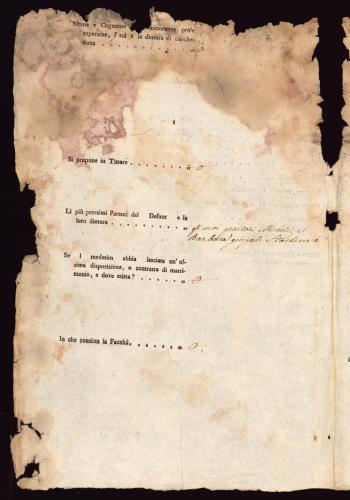 Nome e Cognome minorenne prole
superstite, l'età e la dimora di ciasche-
duna
Si propone in Tutore . . . . . . . . „ 0
Li più prossimi Parenti del Defont e la
loro dimora . . . . . . . . . . „ gli suoi genitori
Barbara
Se l medesim abbia lasciata un' ul-
tima disposizione, o contratto di matri-
monio, e dove esista? . . . . . . „ 0
In che consista la Facoltà, . . . . . . . „ 0.